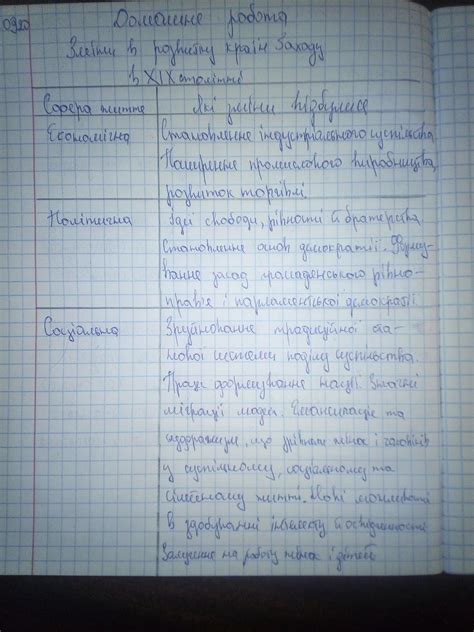 09.20
Домашнє робота
Зміни в розвитку країн Заходу
в XIX столітті
Сфера життя Які зміни відбулися
Економічна Становлення індустріального суспільства.
Поширення промислового виробництва,
розвиток торгівлі.
Політична Ідеї свободи, рівності й братерства.
Становлення основ демократії. Форму-
вання засад громадянського рівно-
прав'я і парламентської демократії
Соціальна Зруйновання традиційної ста-
нової системи поділу суспільства.
Процес формування націй. Значні
міграції людей. Емансипація та
що зрівняли жінок і чоловіків
у суспільному, соціальному та
сімейному житті. Нові можливості
в здобуванні інтелекту й освідченості
Залучення на роботу жінок і дітей